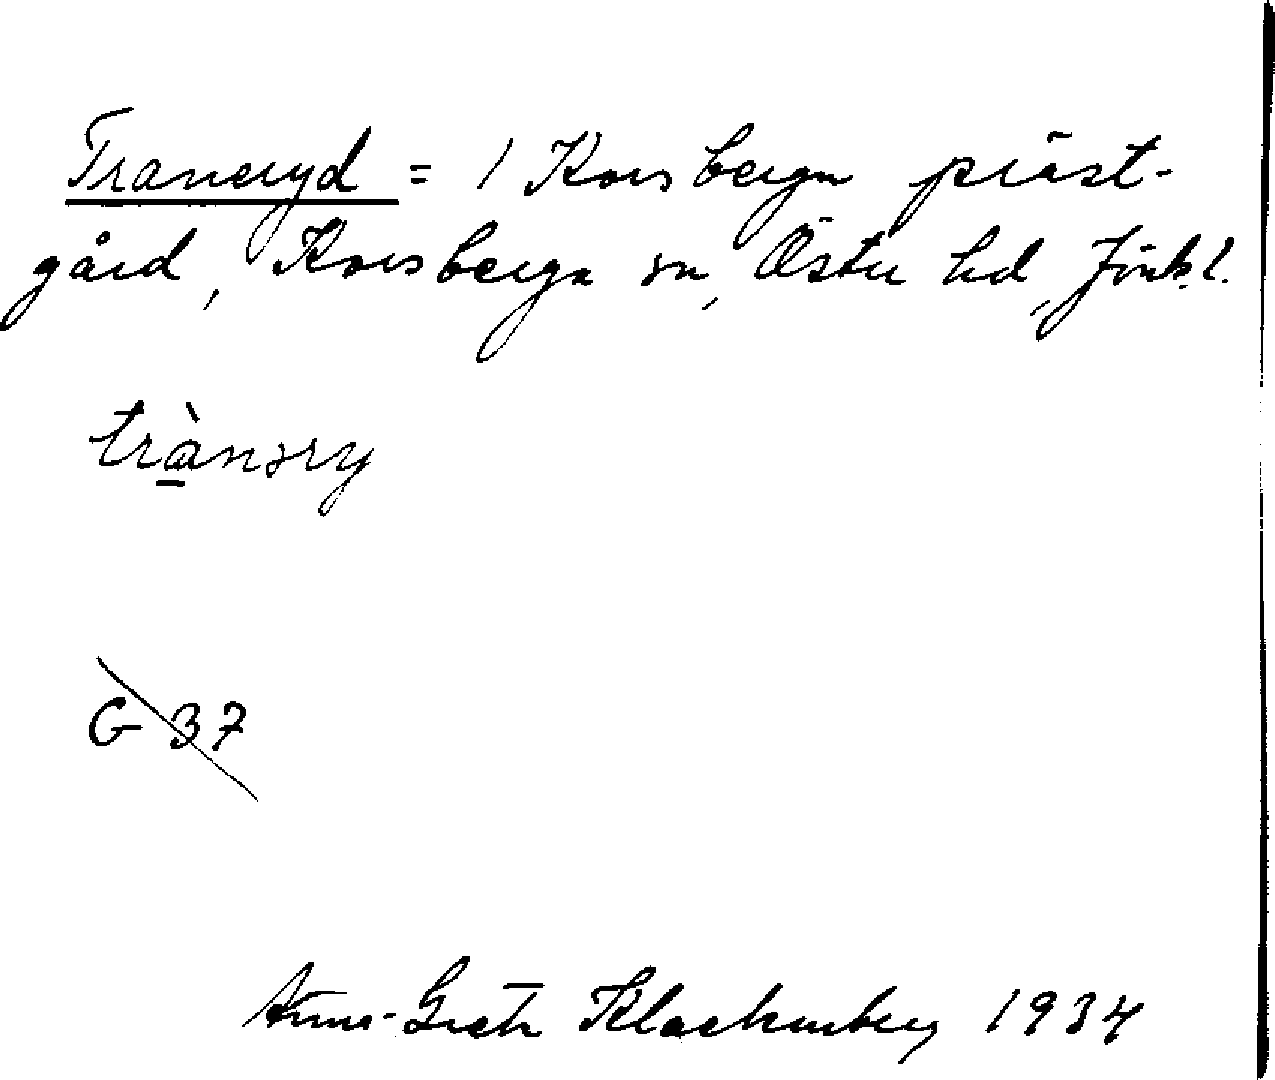 Traneryd = 1 Korsberga präst-
gård, Korsberga sn, Östra hd, Jönk.l.
trànəry
G 37
Anna-Greta Klackenberg 1934